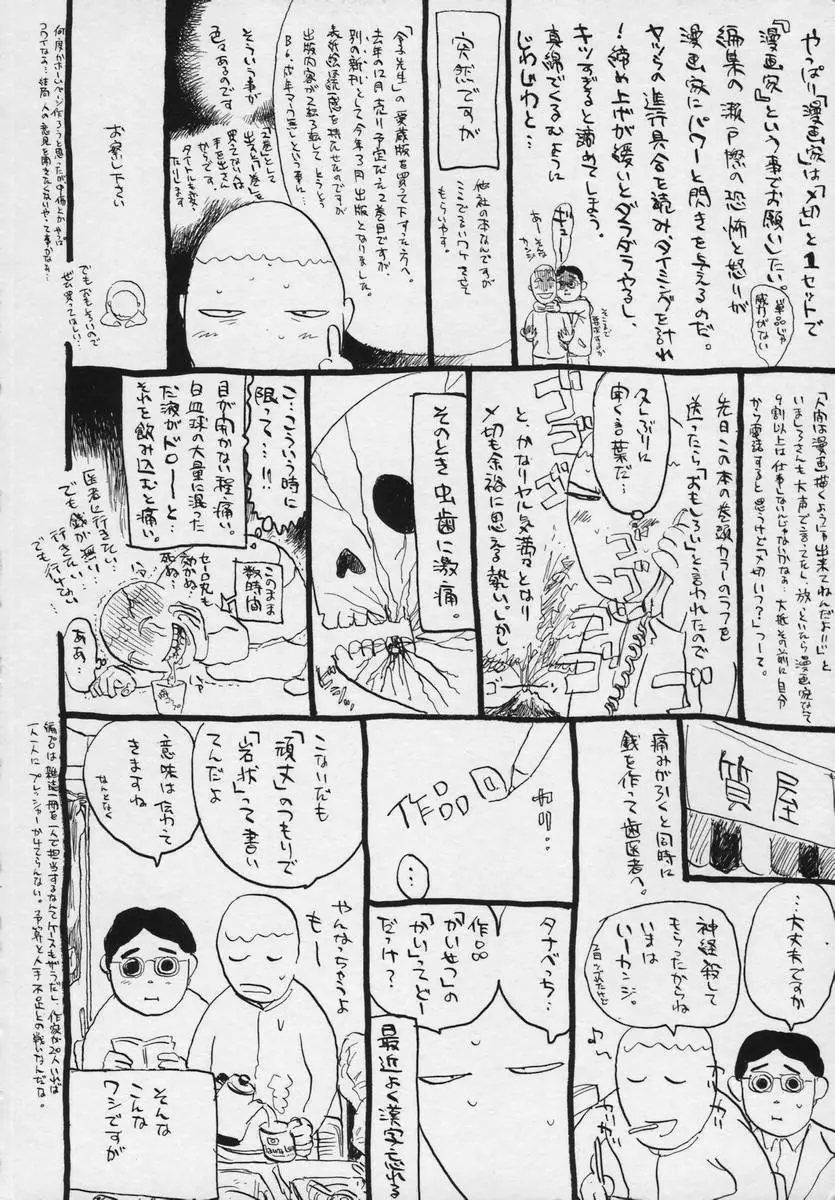 やっぱり「漫画家」は「〆切」と1セットで
『漫画家』という事でお願いしたい。
編集の瀬戸際の恐怖と怒りが
漫画家にパワーと閃きを与えるのだ。
ヤツらの進行具合を読み、タイミングを計れ
!締め上げが緩いとダラダラやるし、
キツすぎると諦めてしまう。
真綿でくるむように
じわじわと…
単品じゃ
威力がない
ギュ
あーそんな
カンジ
そこまで
突然ですが
他社の本なんですが
ここでいいワケを立て
もらいやす。
「金子先生」の愛蔵版を買って下すった方へ。
去年の12月売り予定だった2巻目ですが
別の新刊として今年3月出版となりました。
表紙絵は継続感を持たせたのですが
出版内容が
そういう事が
色々あるのです
「2巻」として
出すと「1巻」を
買ってない人は
手を出さん
からです。
タイトルも変っ
たりします
お察し下さい
でもおもろいので
ぜひ買ってほしい…
何度かホームページ作ろうと思ったが
コワイなぁ…結局人の意見を聞きたくないやって事かなぁ…
「人間は漫画描くように出来てねんだよ!!」と
いましろさんも大声で言ってたし、放っといたら漫画家なんて
9割以上は仕事しないんじゃないかなぁ。大抵その前に自分
から電話すると思うけど「〆切いつ?」つーて。
先日この本の巻頭カラーのラフを
送ったら「おもしろい」と言われたので
久しぶりに
聞く言葉だ…
ゴゴゴゴ
ゴゴゴ
と、かなりヤル気満々となり
〆切も余裕に思える勢い。しか
ゴ
そのとき虫歯に激痛。
こ…こういう時に
限って…!!
目が開かない程痛い。
白血球の大量に混った
だ液がドローーと…
それを飲み込むと痛い。
このまま
数時間
セーロ丸も
効かぬ…
死ぬ…
医者に行きたい
でも銭が無い…
行きたい…
でも行けない…
ああ…
質屋
痛みが引くと同時に
銭を作って歯医者へ。
…大丈夫ですか
神経殺して
もらったからね
いまは
いーカンジ。
2日つぶれたけど
カリカリ
カリカリ
作品回
カリ…
…
タナベっち…
作品
「かいせつ」の
「かい」ってどー
だっけ?
最近よく漢字忘れる
こないだも
「頑丈」のつもりで
「岩状」って書い
てんだよ
意味は伝わって
きますね
なんとなく
やんなっちゃうよ
もー
そんな
こんな
ワシですが
編プロは雑誌一冊を一人で担当するなんてケースもザラだし、作家が20人いれば
一人一人にプレッシャーかけてらんない。予算と人手不足との戦いなんだな。